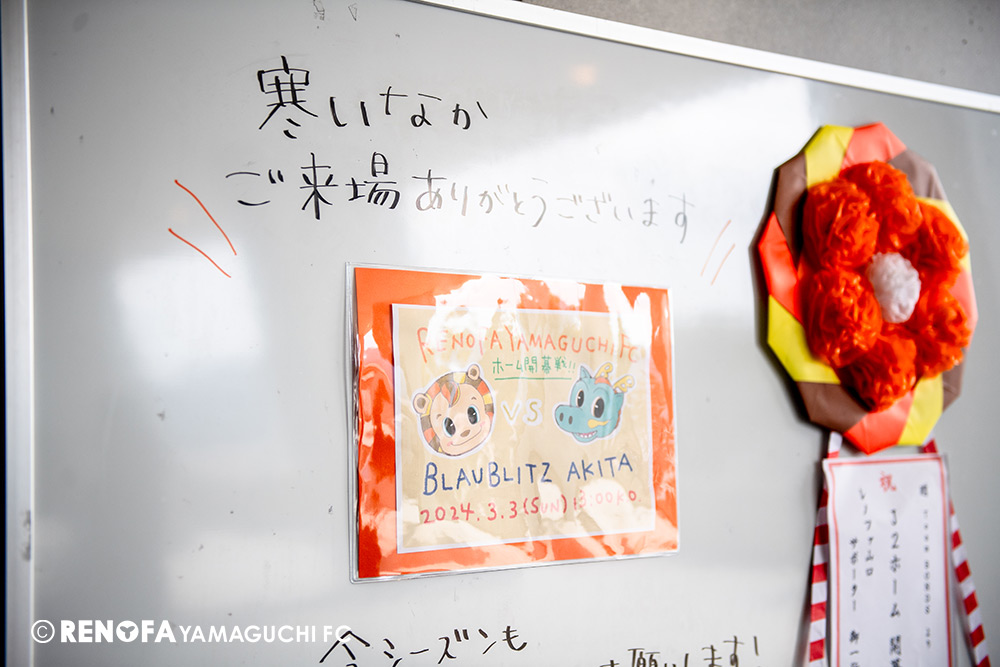 寒いなか
ご来場ありがとうございます
RENOFA YAMAGUCHI FC
ホーム開幕戦!!
VS
BLAUBLITZ AKITA
2024.3.3(SUN) 13:00K.O.
祝
J2ホーム 開幕
レノファ山口
サポーター 御一
今シーズンも
お願いします!
©RENOFA YAMAGUCHI FC